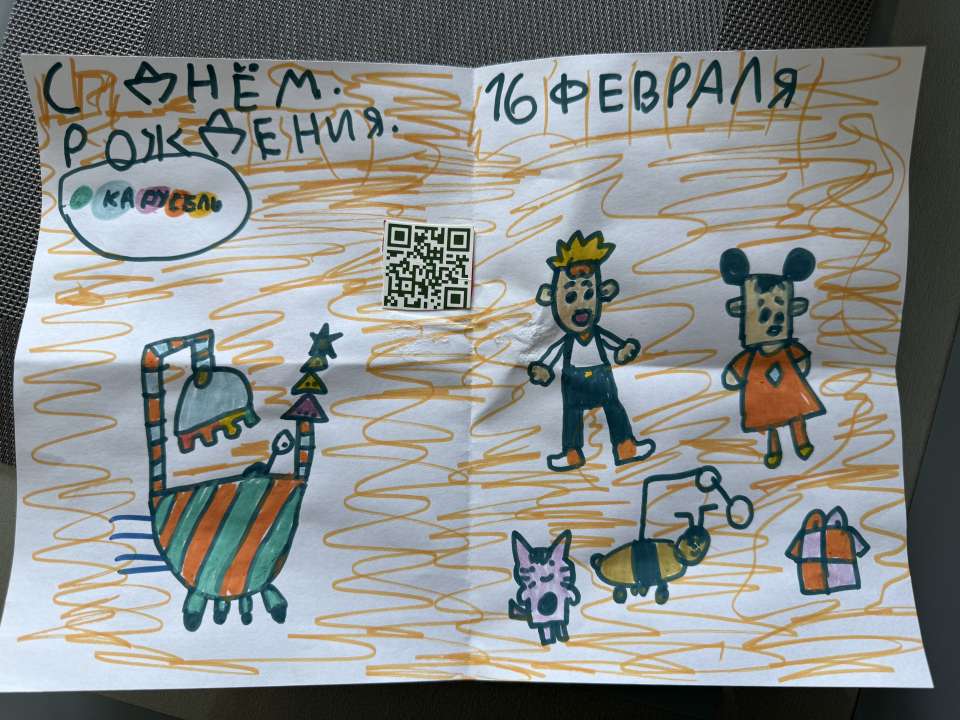 С ДНЁМ.
РОЖДЕНИЯ.
КАРУСЕЛЬ
16 ФЕВРАЛЯ